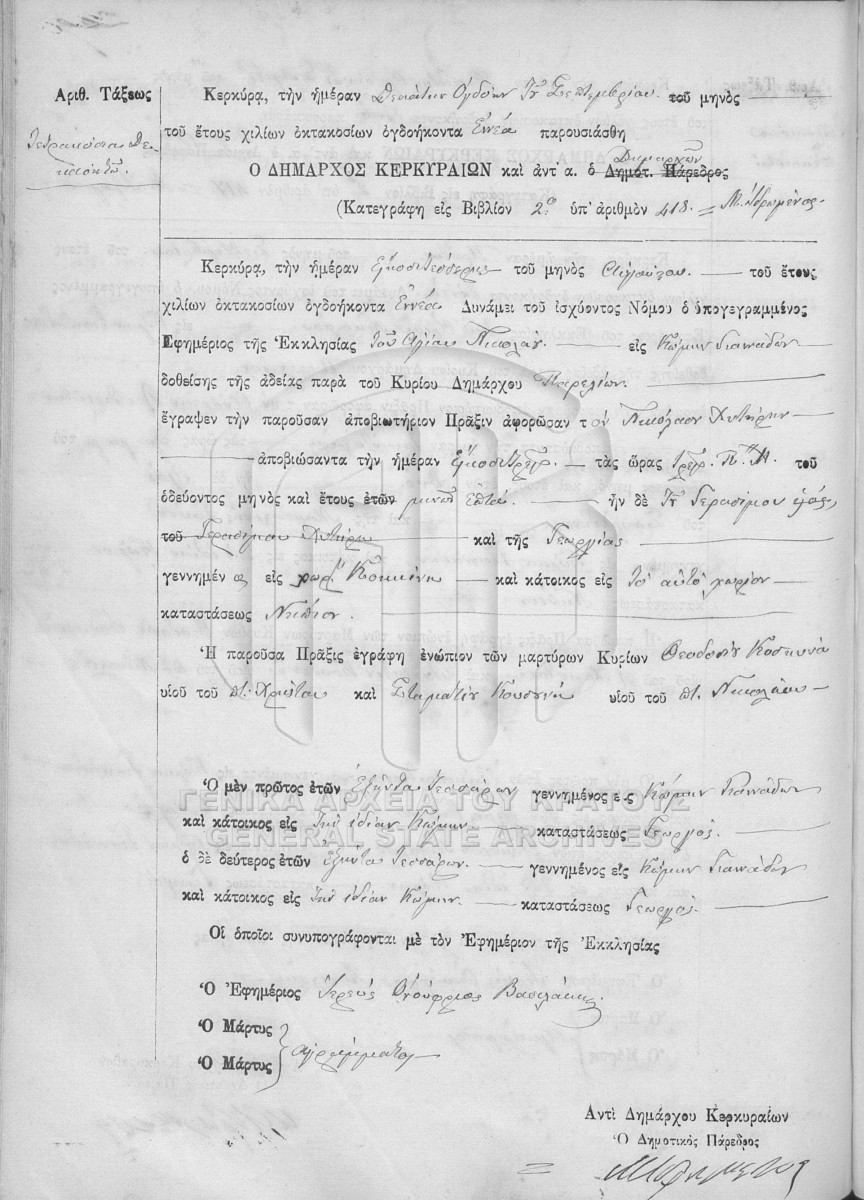 Αριθ. Τάξεως
Τετρακόσια Δε-
καοκτώ
Κερκύρᾳ, τὴν ἡμέραν Δεκάτην Ογδόην Τοῦ Σεπτεμβρίου τοῦ μηνὸς
τοῦ ἔτους χιλίων ὀκτακοσίων ὀγδοήκοντα Ἐννέα παρουσιάσθη
Δημαρχῶν
Ο ΔΗΜΑΡΧΟΣ ΚΕΡΚΥΡΑΙΩΝ καὶ ἀντ' α. ὁ Δημοτ. Πάρεδρος
(Κατεγράφη εἰς Βιβλίον 2ον ὑπ' ἀριθμὸν 418. =
Κερκύρᾳ, τὴν ἡμέραν εἰκοσιτέσσερις τοῦ μηνὸς Αὐγούστου τοῦ ἔτους
χιλίων ὀκτακοσίων ὀγδοήκοντα Ἐννέα Δυνάμει τοῦ ἰσχύοντος Νόμου ὁ ὑπογεγραμμένος
Ἐφημέριος τῆς Ἐκκλησίας τοῦ Ἁγίου Νικολάου εἰς Κώμην Γιαννάδων
δοθείσης τῆς ἀδείας παρὰ τοῦ Κυρίου Δημάρχου Παρελίων
ἔγραψεν τὴν παροῦσαν ἀποβιωτήριον Πρᾶξιν ἀφορῶσαν τὸν Νικόλαον Χυτήρην
ἀποβιώσαντα τὴν ἡμέραν Εἰκοσιτρεῖς τὰς ὥρας τρεῖς Π.Μ. τοῦ
ὁδεύοντος μηνὸς καὶ ἔτους ἐτῶν μηνῶν ἑπτά. ἦν δὲ Τοῦ Γερασίμου
τοῦ Γερασίμου Χυτήρη καὶ τῆς Γεωργίας
γεννημένος εἰς χωρ. Κοκκίνη καὶ κάτοικος εἰς τὸ αὐτὸ χωρίον
καταστάσεως Νήπιον
Ἡ παροῦσα Πρᾶξις ἐγράφη ἐνώπιον τῶν μαρτύρων Κυρίων Θεοδόση Κοσκινᾶ
υἱοῦ τοῦ πτ. Χρήστου καὶ Σταματίου υἱοῦ τοῦ πτ. Νικολάου
Ὁ μὲν πρῶτος ἐτῶν Ἑξῆντα Τεσσάρων γεννημένος εἰς Κώμην Γιαννάδων
καὶ κάτοικος εἰς τὴν ἰδίαν Κώμην καταστάσεως Γεωργός
ὁ δὲ δεύτερος ἐτῶν Ἑξῆντα Τεσσάρων. γεννημένος εἰς Κώμην Γιαννάδων
καὶ κάτοικος εἰς τὴν ἰδίαν Κώμην καταστάσεως Γεωργός.
Οἱ ὁποῖοι συνυπογράφονται μὲ τὸν Ἐφημέριον τῆς Ἐκκλησίας
Ὁ Ἐφημέριος Ἱερεὺς Ὀνούφριος Βασιλάκης
Ὁ Μάρτυς
Ὁ Μάρτυς
ἀγράμματοι
Αντὶ Δημάρχου Κερκυραίων
Ὁ Δημοτικὸς Πάρεδρος
ΓΕΝΙΚΑ ΑΡΧΕΙΑ ΤΟΥ ΚΡΑΤΟΥΣ
GENERAL STATE ARCHIVES